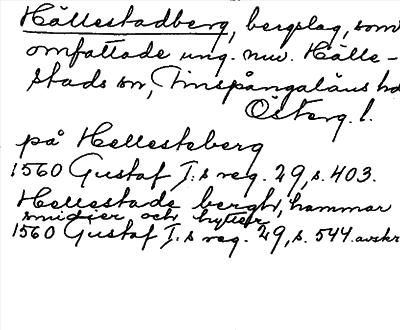 Hällestadberg, bergslag, som
omfattade ung. nuv. Hälle-
stads sn, Finspångaläns hd
Österg. l.
på Hellesteberg
1560 Gustaf I:s reg. 29, s. 403.
Hellestade bergh, hammar
smidier och hytter
1560 Gustaf I:s reg. 29, s. 544. avskr